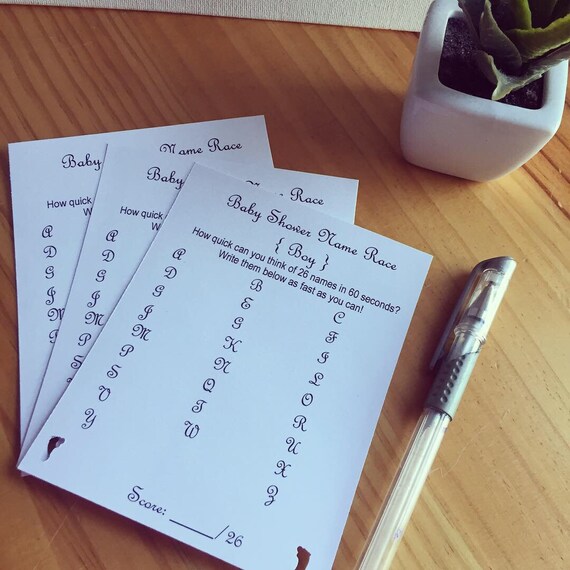 Baby Name Race
How quick
A
D
G
J
M
Baby Race
How quick
A
D
G
J
M
P
Baby Shower Name Race
{ Boy }
How quick can you think of 26 names in 60 seconds?
Write them below as fast as you can!
A B C
D E F
G H I
J K L
M N O
P Q R
S T U
V W X
Y Z
Score: ______/26